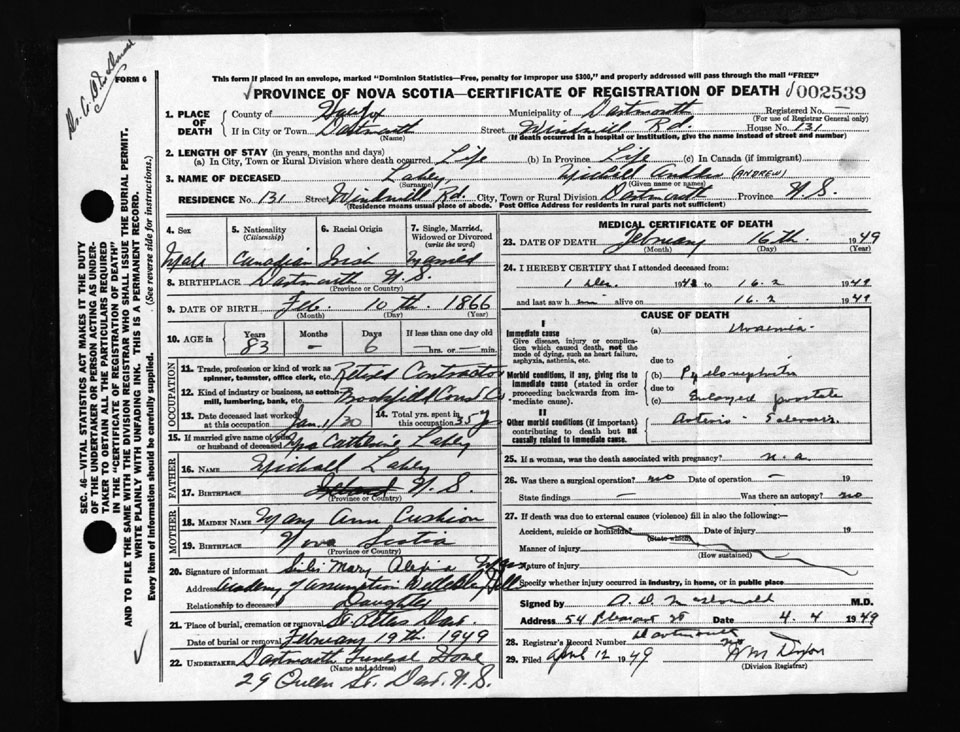 FORM 6
This form if placed in an envelope, marked "Dominion Statistics—Free, penalty for improper use $300," and properly addressed will pass through the mail "FREE"
PROVINCE OF NOVA SCOTIA—CERTIFICATE OF REGISTRATION OF DEATH 002539
SEC. 46—VITAL STATISTICS ACT MAKES IT THE DUTY
OF THE UNDERTAKER OR PERSON ACTING AS UNDER-
TAKER TO OBTAIN ALL THE PARTICULARS REQUIRED
IN THE "CERTIFICATE OF REGISTRATION OF DEATH"
AND TO FILE THE SAME WITH THE DIVISION REGISTRAR WHO SHALL ISSUE THE BURIAL PERMIT.
WRITE PLAINLY WITH UNFADING INK. THIS IS A PERMANENT RECORD.
Every item of information should be carefully supplied. (See reverse side for instructions.)
1. PLACE OF DEATH
County of Halifax Municipality of Dartmouth Registered No. —
(For use of Registrar General only)
If in City or Town Dartmouth Street Windmill Rd. House No. 131
(Name) (If death occurred in a hospital or institution, give the name instead of street and number)
2. LENGTH OF STAY (in years, months and days)
(a) In City, Town or Rural Division where death occurred Life (b) In Province Life (c) In Canada (if immigrant)
3. NAME OF DECEASED Lahey Michael (ANDREW)
(Surname) (Given name or names)
RESIDENCE No. 131 Street Windmill Rd. City, Town or Rural Division Dartmouth Province N.S.
(Residence means usual place of abode. Post Office Address for residents in rural parts not sufficient)
4. Sex
Male
5. Nationality (Citizenship)
Canadian
6. Racial Origin
Irish
7. Single, Married, Widowed or Divorced (write the word)
Married
8. BIRTHPLACE Dartmouth N.S.
(Province or Country)
9. DATE OF BIRTH Feb. 10th. 1866
(Month) (Day) (Year)
10. AGE in
Years Months Days If less than one day old
83 — 6 hrs. or min.
OCCUPATION
11. Trade, profession or kind of work as spinner, teamster, office clerk, etc. Retired Contractor
12. Kind of industry or business, as cotton mill, lumbering, bank, etc. Brookfield Const Co
13. Date deceased last worked at this occupation Jan. 1/30
14. Total yrs. spent in this occupation 35 y
15. If married give name of wife or husband of deceased Catherine Lahey
FATHER
16. NAME Michael Lahey
17. BIRTHPLACE N.S.
(Province or Country)
MOTHER
18. MAIDEN NAME Mary Ann Cushion
19. BIRTHPLACE Nova Scotia
(Province or Country)
20. Signature of informant Sister Mary
Address Academy of Assumption Wellesley Hills
Relationship to deceased Daughter
21. Place of burial, cremation or removal St. Peters Dart.
Date of burial or removal February 19th. 1949
22. UNDERTAKER Dartmouth Funeral Home
(Name and address)
29 Queen St. Dart. N.S.
MEDICAL CERTIFICATE OF DEATH
23. DATE OF DEATH February 16th. 1949
(Month) (Day) (Year)
24. I HEREBY CERTIFY that I attended deceased from
1 Dec. 1948 to 16.2 1949
and last saw him alive on 16.2 1949
CAUSE OF DEATH
I
Immediate cause
Give disease, injury or complication which caused death, not the mode of dying, such as heart failure, asphyxia, asthenia, etc.
(a) Uraemia
due to
Morbid conditions, if any, giving rise to immediate cause (stated in order proceeding backwards from immediate cause).
(b) Pyelonephritis
due to
(c) Enlarged prostate
II
Other morbid conditions (if important) contributing to death but not causally related to immediate cause.
Arterio Sclerosis
25. If a woman, was the death associated with pregnancy? n.a.
26. Was there a surgical operation? no Date of operation —
State findings — Was there an autopsy? no
27. If death was due to external causes (violence) fill in also the following:—
Accident, suicide or homicide? Date of injury 19
(State which)
Manner of injury
(How sustained)
Nature of injury
Specify whether injury occurred in industry, in home, or in public place
Signed by M.D.
Address 54 Pleasant St Date 4.4 1949
28. Registrar's Record Number
29. Filed April 12 1949
(Division Registrar)